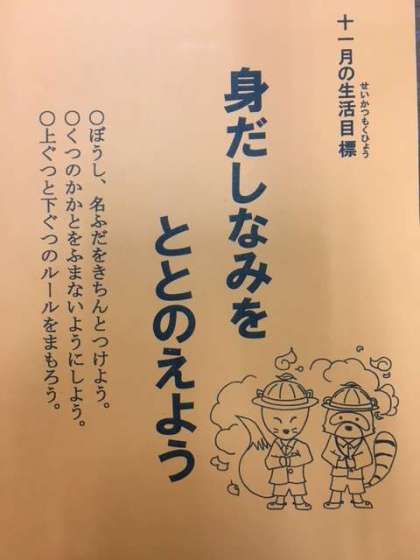 十一月の生活目標
せいかつもくひょう
身だしなみを
ととのえよう
○ぼうし、名ふだをきちんとつけよう。
○くつのかかとをふまないようにしよう。
○上ぐつと下ぐつのルールをまもろう。